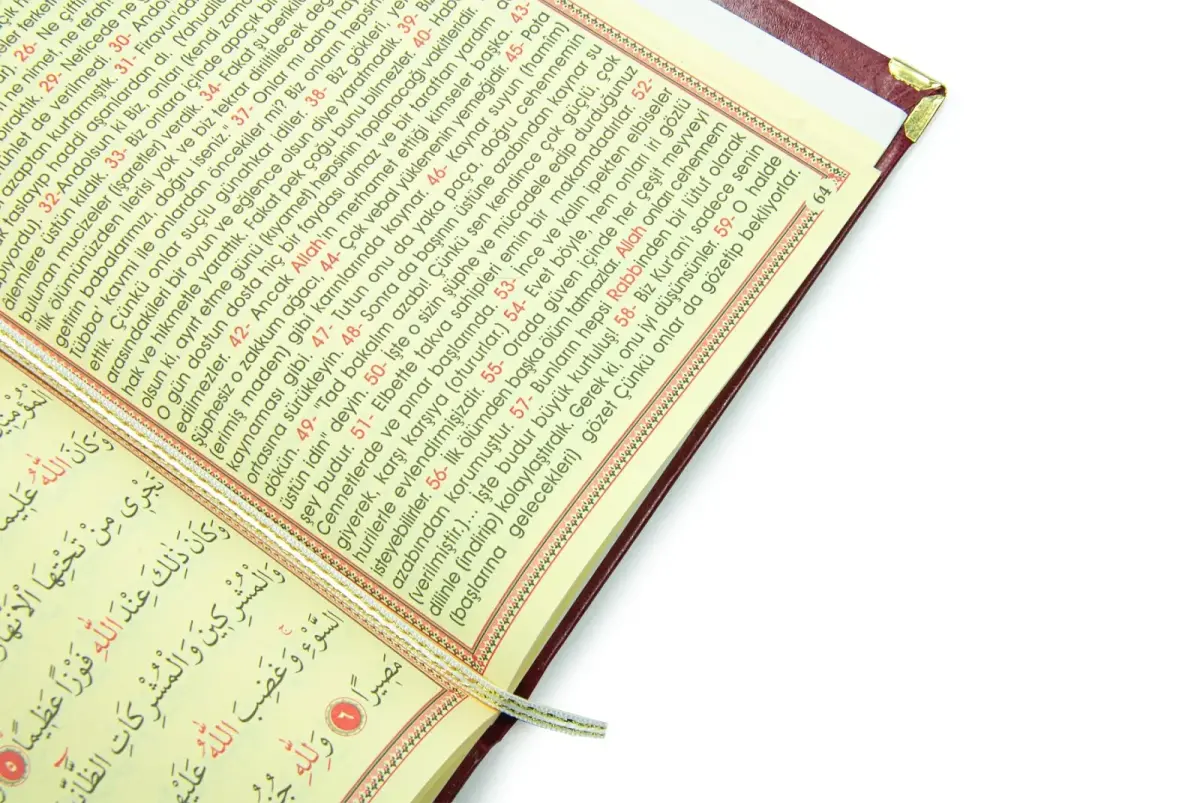 26-
ne nimet, ne
29- Neticede
bıraktık.
mühlet de verilmedi. 30- Andol
azaptan kurtarmıştık. 31- Firavun'dan
başlayıp haddi aşanlardan dı.
32- Andolsun ki Biz, onları (kendi zamanl
âlemlere üstün kıldık. 33- Biz onlara içinde apaçık bir
bulunan mucizeler (işaretler) verdik. 34- Fakat şu beriki
"ilk ölümünüzden ilerisi yok ve biz tekrar diriltilecek değ
getirin babalarımızı, doğru iseniz." 37- Onlar mı daha ha
Tübba' kavmi ile onlardan öncekiler mi? Biz onların hepsin
ettik. Çünkü onlar suçlu günahkar idiler. 38- Biz gökleri, yer
arasındakileri bir oyun ve eğlence olsun diye yaratmadık. 39- B
hak ve hikmetle yarattık. Fakat pek çoğu bunu bilmezler. 40- Ha
olsun ki, ayırt etme günü (kıyamet) hepsinin toplanacağı vakitleridir.
O gün dostun dosta hiç bir faydası olmaz ve bir taraftan yardım d
edilmezler. 42- Ancak Allah'ın merhamet ettiği kimseler başka. 43-
Şüphesiz o zakkum ağacı, 44- Çok vebal yüklenenin yemeğidir. 45- Pota
(erimiş maden) gibi karınlarında kaynar. 46- Kaynar suyun (hamim)
kaynaması gibi. 47- Tutun onu da yaka paça, doğru cehennemin
ortasına sürükleyin. 48- Sonra da başının üstüne azabından kaynar su
dökün, 49- "tad bakalım azabı! Çünkü sen kendince çok güçlü, çok
üstün idin" deyin. 50- İşte o sizin şüphe ve mücadele edip durduğunuz
şey budur. 51- Elbette takva sahipleri emin bir makamdadırlar. 52-
Cennetlerde ve pınar başlarında. 53- İnce ve kalın ipekten elbiseler
giyerek, karşı karşıya (otururlar.) 54- Evet böyle, hem onları iri gözlü
hurilerle evlendirmişizdir. 55- Orada güven içinde her çeşit meyveyi
isteyebilirler. 56- İlk ölümden başka ölüm tatmazlar. Allah onları cehennem
azabından korumuştur. 57- Bunların hepsi Rabbinden bir lütuf olarak
(verilmiştir.)... İşte budur büyük kurtuluş! 58- Biz Kur'an'ı sadece senin
dilinle (indirip) kolaylaştırdık. Gerek ki, onu iyi düşünsünler. 59- O halde
(başlarına gelecekleri) gözet Çünkü onlar da gözetip bekliyorlar.
64
تَجْرٖى مِنْ تَحْتِهَا الْاَنْهَارُ
وَكَانَ اللّٰهُ عَلٖيمًا
وَكَانَ ذٰلِكَ عِنْدَ اللّٰهِ فَوْزًا عَظٖيمًا ٥
وَالْمُشْرِكٖينَ وَالْمُشْرِكَاتِ الظَّانّٖ
السَّوْءِ وَغَضِبَ اللّٰهُ عَلَيْهِ
مَصٖيرًا ٦ وَلِلّٰهِ جُنُو